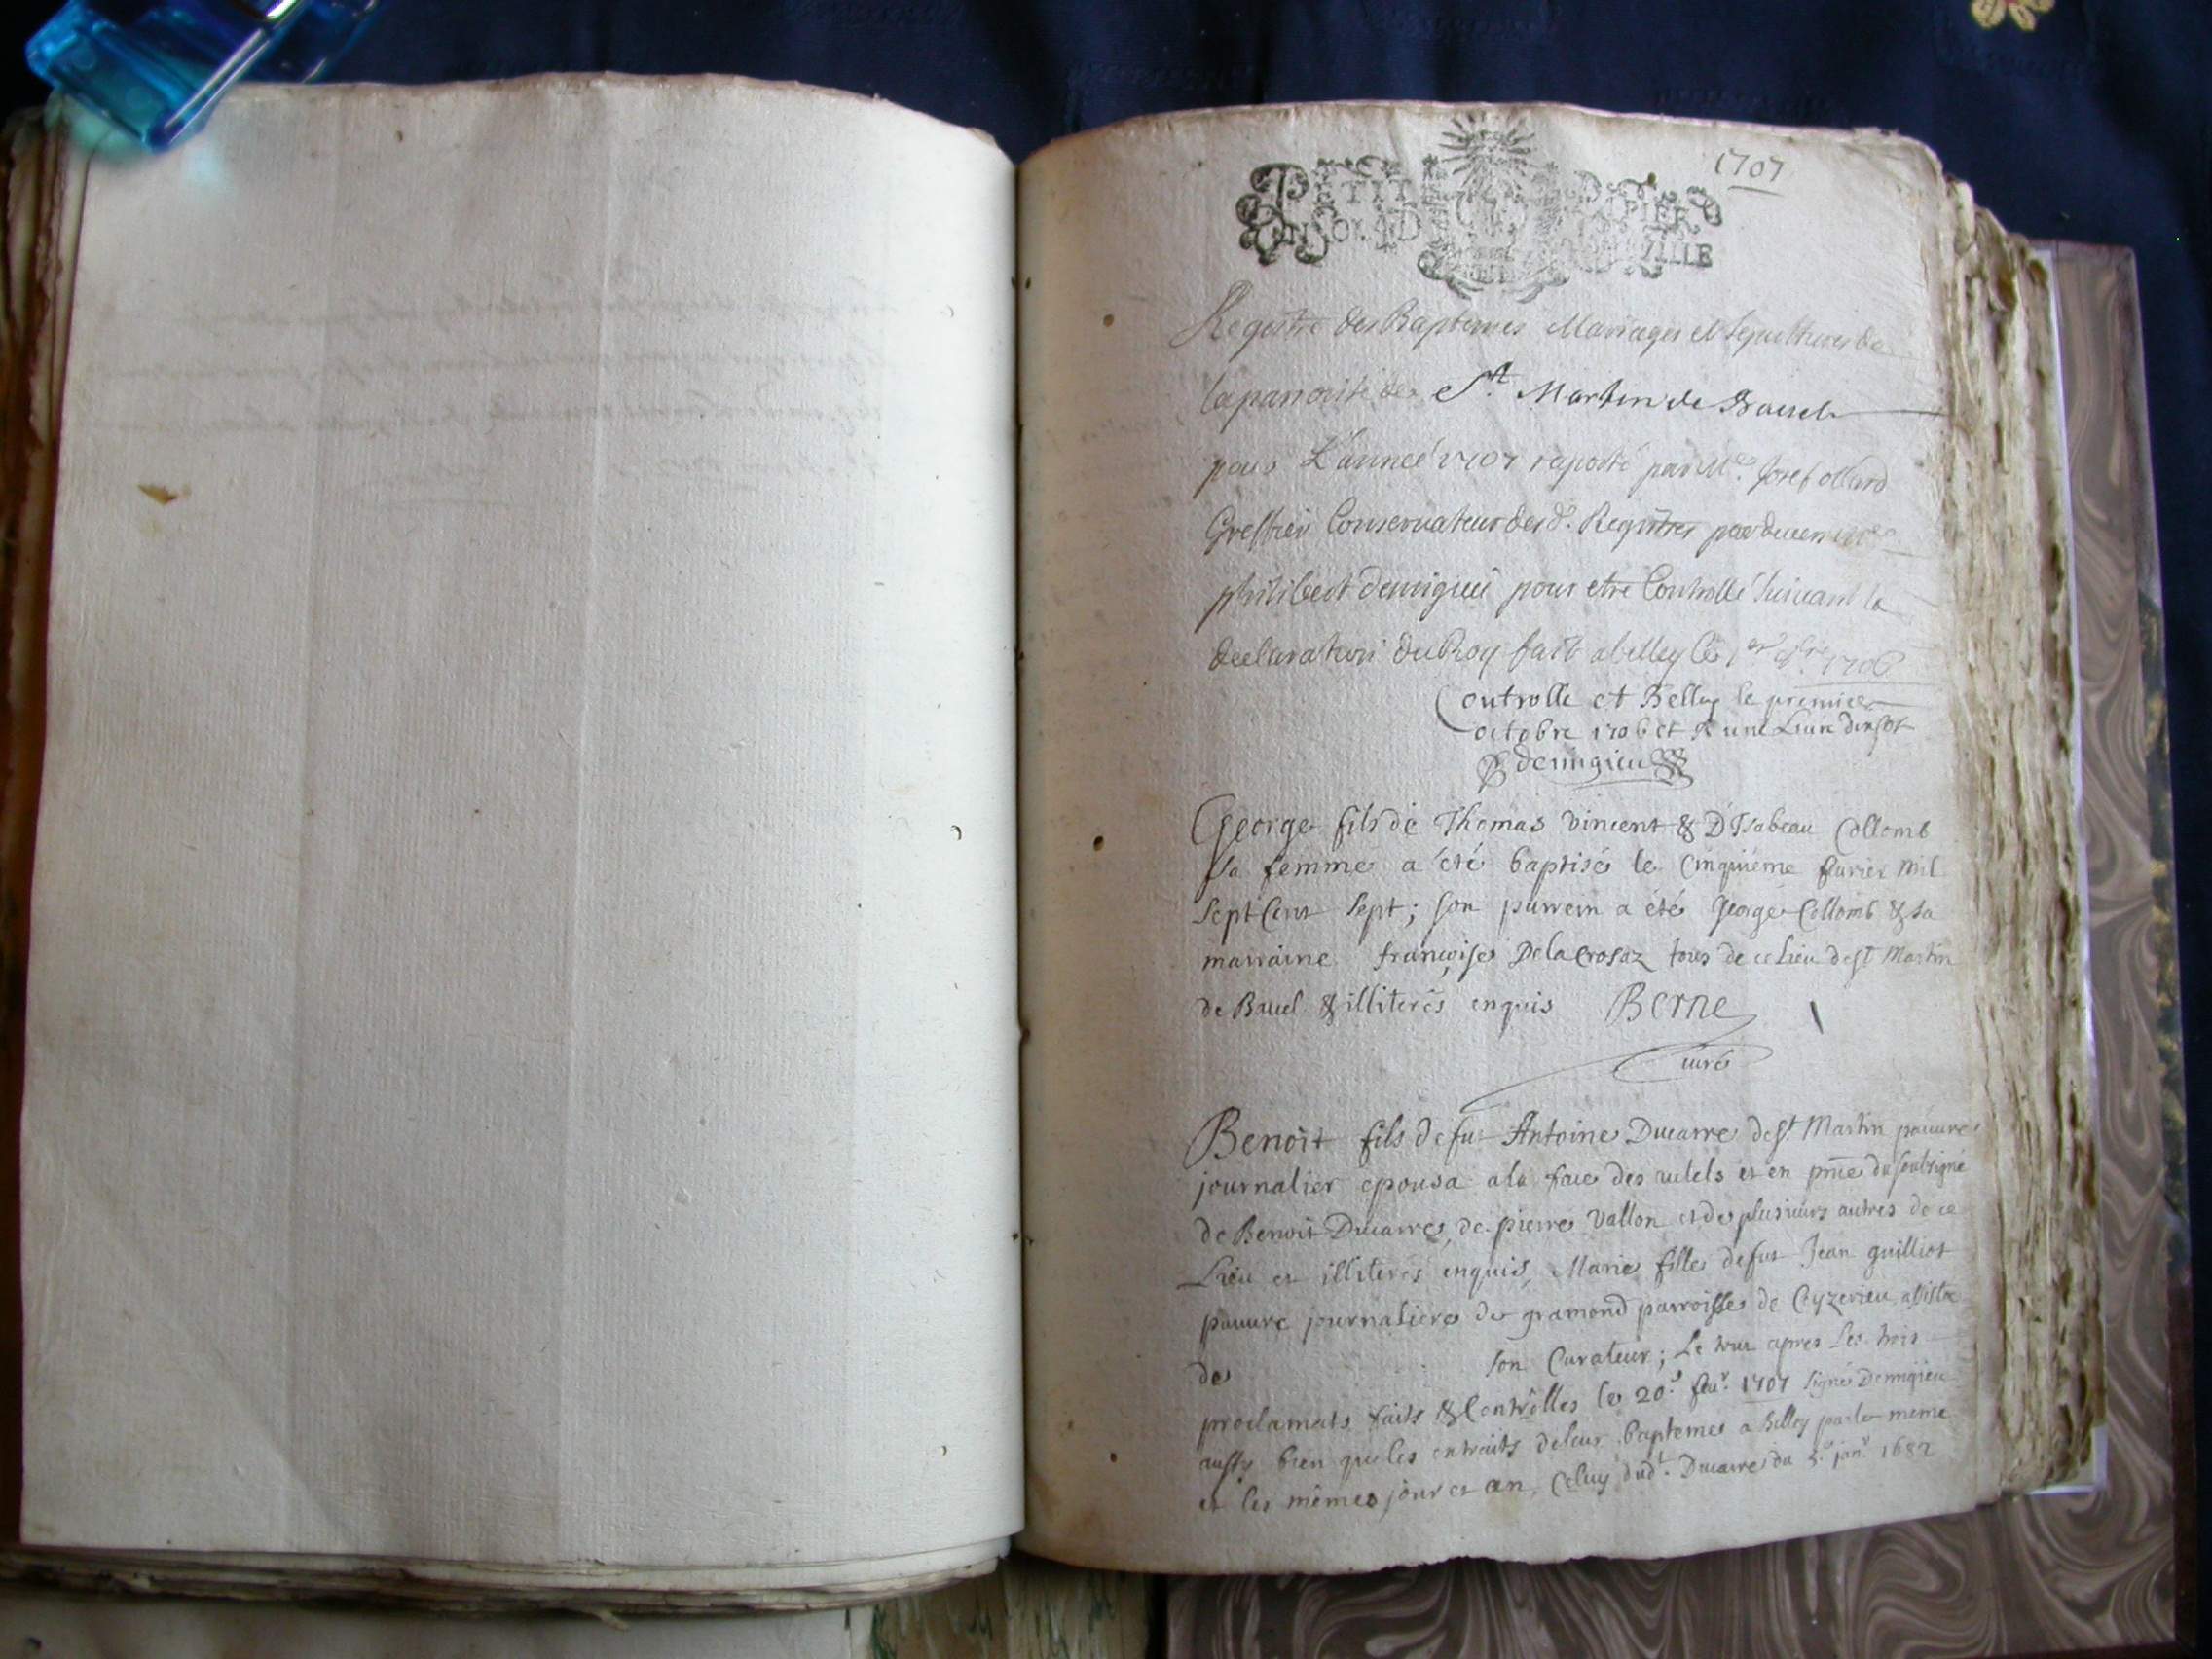 1707
PETIT PAPIER
UN SOL 4D LA FEUILLE
Registre des Baptemes Mariages et Sepultures de
la parroisse de St. Martin de Bauel
pour L'année 1707 raporté par Me. Josef ollard
Greffier Conservateur des d. Registres par devers
philibert demigieu pour etre Controllé suivant la
declaration du Roy fait a belley le 1er 1706
Controlle et Belley le premier
octobre 1706 et R une Liure
demigieu
George fils de Thomas Vincent & D'Isabeau Collomb
sa femme a été baptisé le Cinquiéme feurier mil
Sept Cent Sept; son parrein a été George Collomb & sa
marraine françoise Delacrosaz tous de ce Lieu de st Martin
de Bauel & illiterés enquis Berne
Curé
Benoit fils de fut Antoine Ducarre de st. Martin pauure
journalier epousa a la face des et en pnce du soubsigné
de Benoit Ducarre, de pierre Vallon et de plusieurs autres de ce
Lieu et illiterés enquis, Marie fille de fut Jean guilliot
pauure journaliere de gramond parroisse de Ceyzerieu, assistée
de son Curateur; Le tout apres Les trois
proclamats faits & Contrôlles le 20e feur. 1707 signé Demigieu
aussy bien que les extraits de leur bapteme a belley par le meme
et les mêmes jour et an, Celuy dudt. Ducarre du 5e janr. 1682